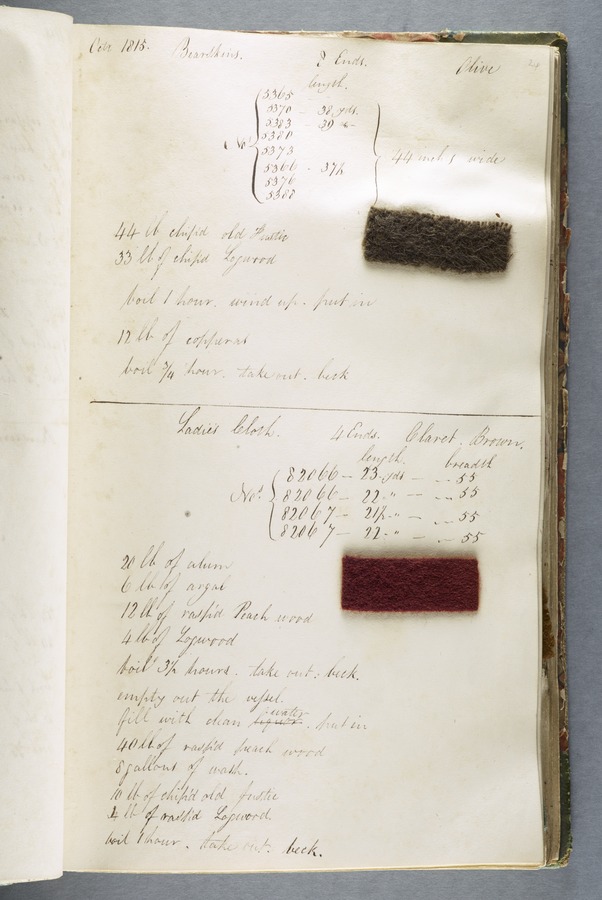 1815. Beardskins. 8 Ends. Olive
length.
5365
5370 - 38 yds.
5383 - 39 "
5380
No.
5373
5366 - 37½
5376
5388
44 inch s wide
44 lb chip'd old Fustic
33 lb of chip'd Logwood
boil 1 hour. wind up. put in
12 lb of copperas
boil ¾ hour. take out. beck
Ladies Cloth. 4 Ends. Claret. Brown.
length. breadth
82066 - 23 yds - 55
No. 82066 - 22 " - 55
82067 - 21½ " - 55
82067 - 22 " - 55
20 lb of alum
6 lb of argal
12 lb of rasp'd Peach wood
4 lb of Logwood
boil 3½ hours. take out. beck.
empty out the vessel.
fill with clean liquor water. put in
40 lb of rasp'd peach wood
8 gallons of wash.
10 lb of chip'd old fustic
4 lb of rasp'd Logwood.
boil 1 hour. take out. beck.